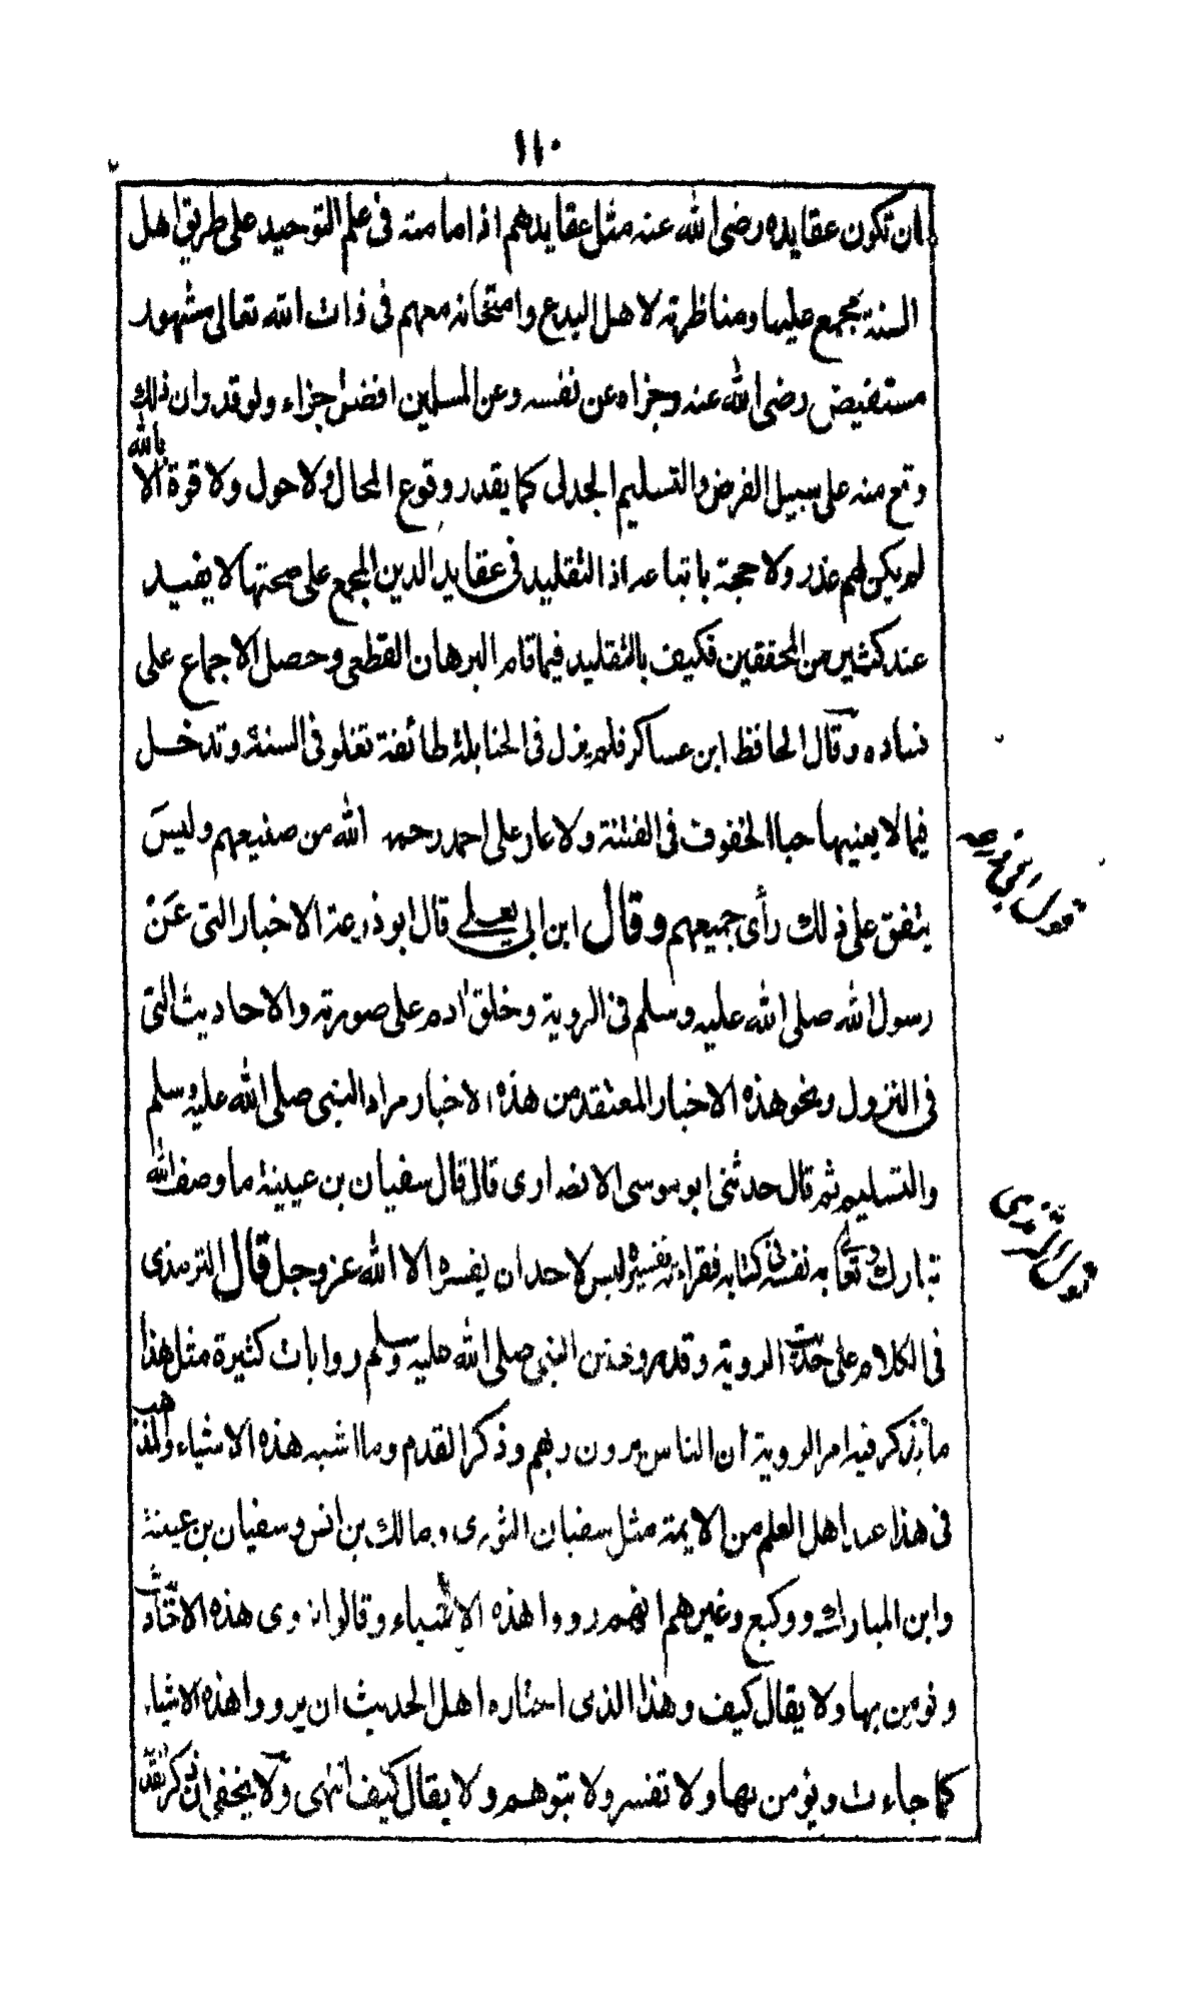 ١١٠
ان تكون عقايده رضى الله عنه مثل عقايدهم اذ امامته فى علم التوحيد على طريق اهل
السنة مجمع عليها ومناظرته لاهل البدع وامتحانه معهم فى ذات الله تعالى مشهور
مستفيض رضى الله عنه وجزاه عن نفسه وعن المسلمين افضل جزاء ولو قدر ان ذلك
وقع منه على سبيل الفرض والتسليم الجدلى كما يقدر وقوع المحال ولا حول ولا قوة الا بالله
لم يكن لهم عذر ولا حجة باتباعه اذ التقليد فى عقايد الدين المجمع على صحتها لا يفيد
عند كثير من المحققين فكيف بالتقليد فيما قام البرهان القطعى وحصل الاجماع على
فساده وقال الحافظ ابن عساكر فلم يزل فى الحنابلة طائفة تغلو فى السنة وتدخل
فيما لا يعنيها حبا الخفوف فى الفتنة ولا عار على احمد رحمه الله من صنيعهم وليس
يتفق على ذلك رأى جميعهم وقال ابن ابى يعلى قال ابو ذرعة الاخبار التى عن
رسول الله صلى الله عليه وسلم فى الروية وخلق ادم على صورته والاحاديث التى
فى النزول ونحو هذه الاخبار المعتقد من هذه الاخبار مراد النبى صلى الله عليه وسلم
والتسليم ثم قال حدثنى ابو موسى الانصارى قال قال سفيان بن عيينة ما وصف الله
تبارك وتعالى به نفسه فى كتابه فقراءته تفسيره ليس لاحد ان يفسره الا الله عز وجل قال الترمذى
فى الكلام على حديث الروية وقد روى عن النبى صلى الله عليه وسلم روايات كثيرة مثل هذا
ما يذكر فيه امر الروية ان الناس يرون ربهم وذكر القدم وما اشبه هذه الاشياء والمذهب
فى هذا عند اهل العلم من الايمة مثل سفيان الثورى ومالك بن انس وسفيان بن عيينة
وابن المبارك ووكيع وغيرهم انهم رووا هذه الاشياء وقالوا نروى هذه الاحاديث
ونومن بها ولا يقال كيف وهذا الذى اختاره اهل الحديث ان يرووا هذه الاشياء
كما جاءت ويؤمن بها ولا تفسر ولا يتوهم ولا يقال كيف انتهى ولا يخفى ان ذكر
قول ابى ذرعه
قول الترمذى